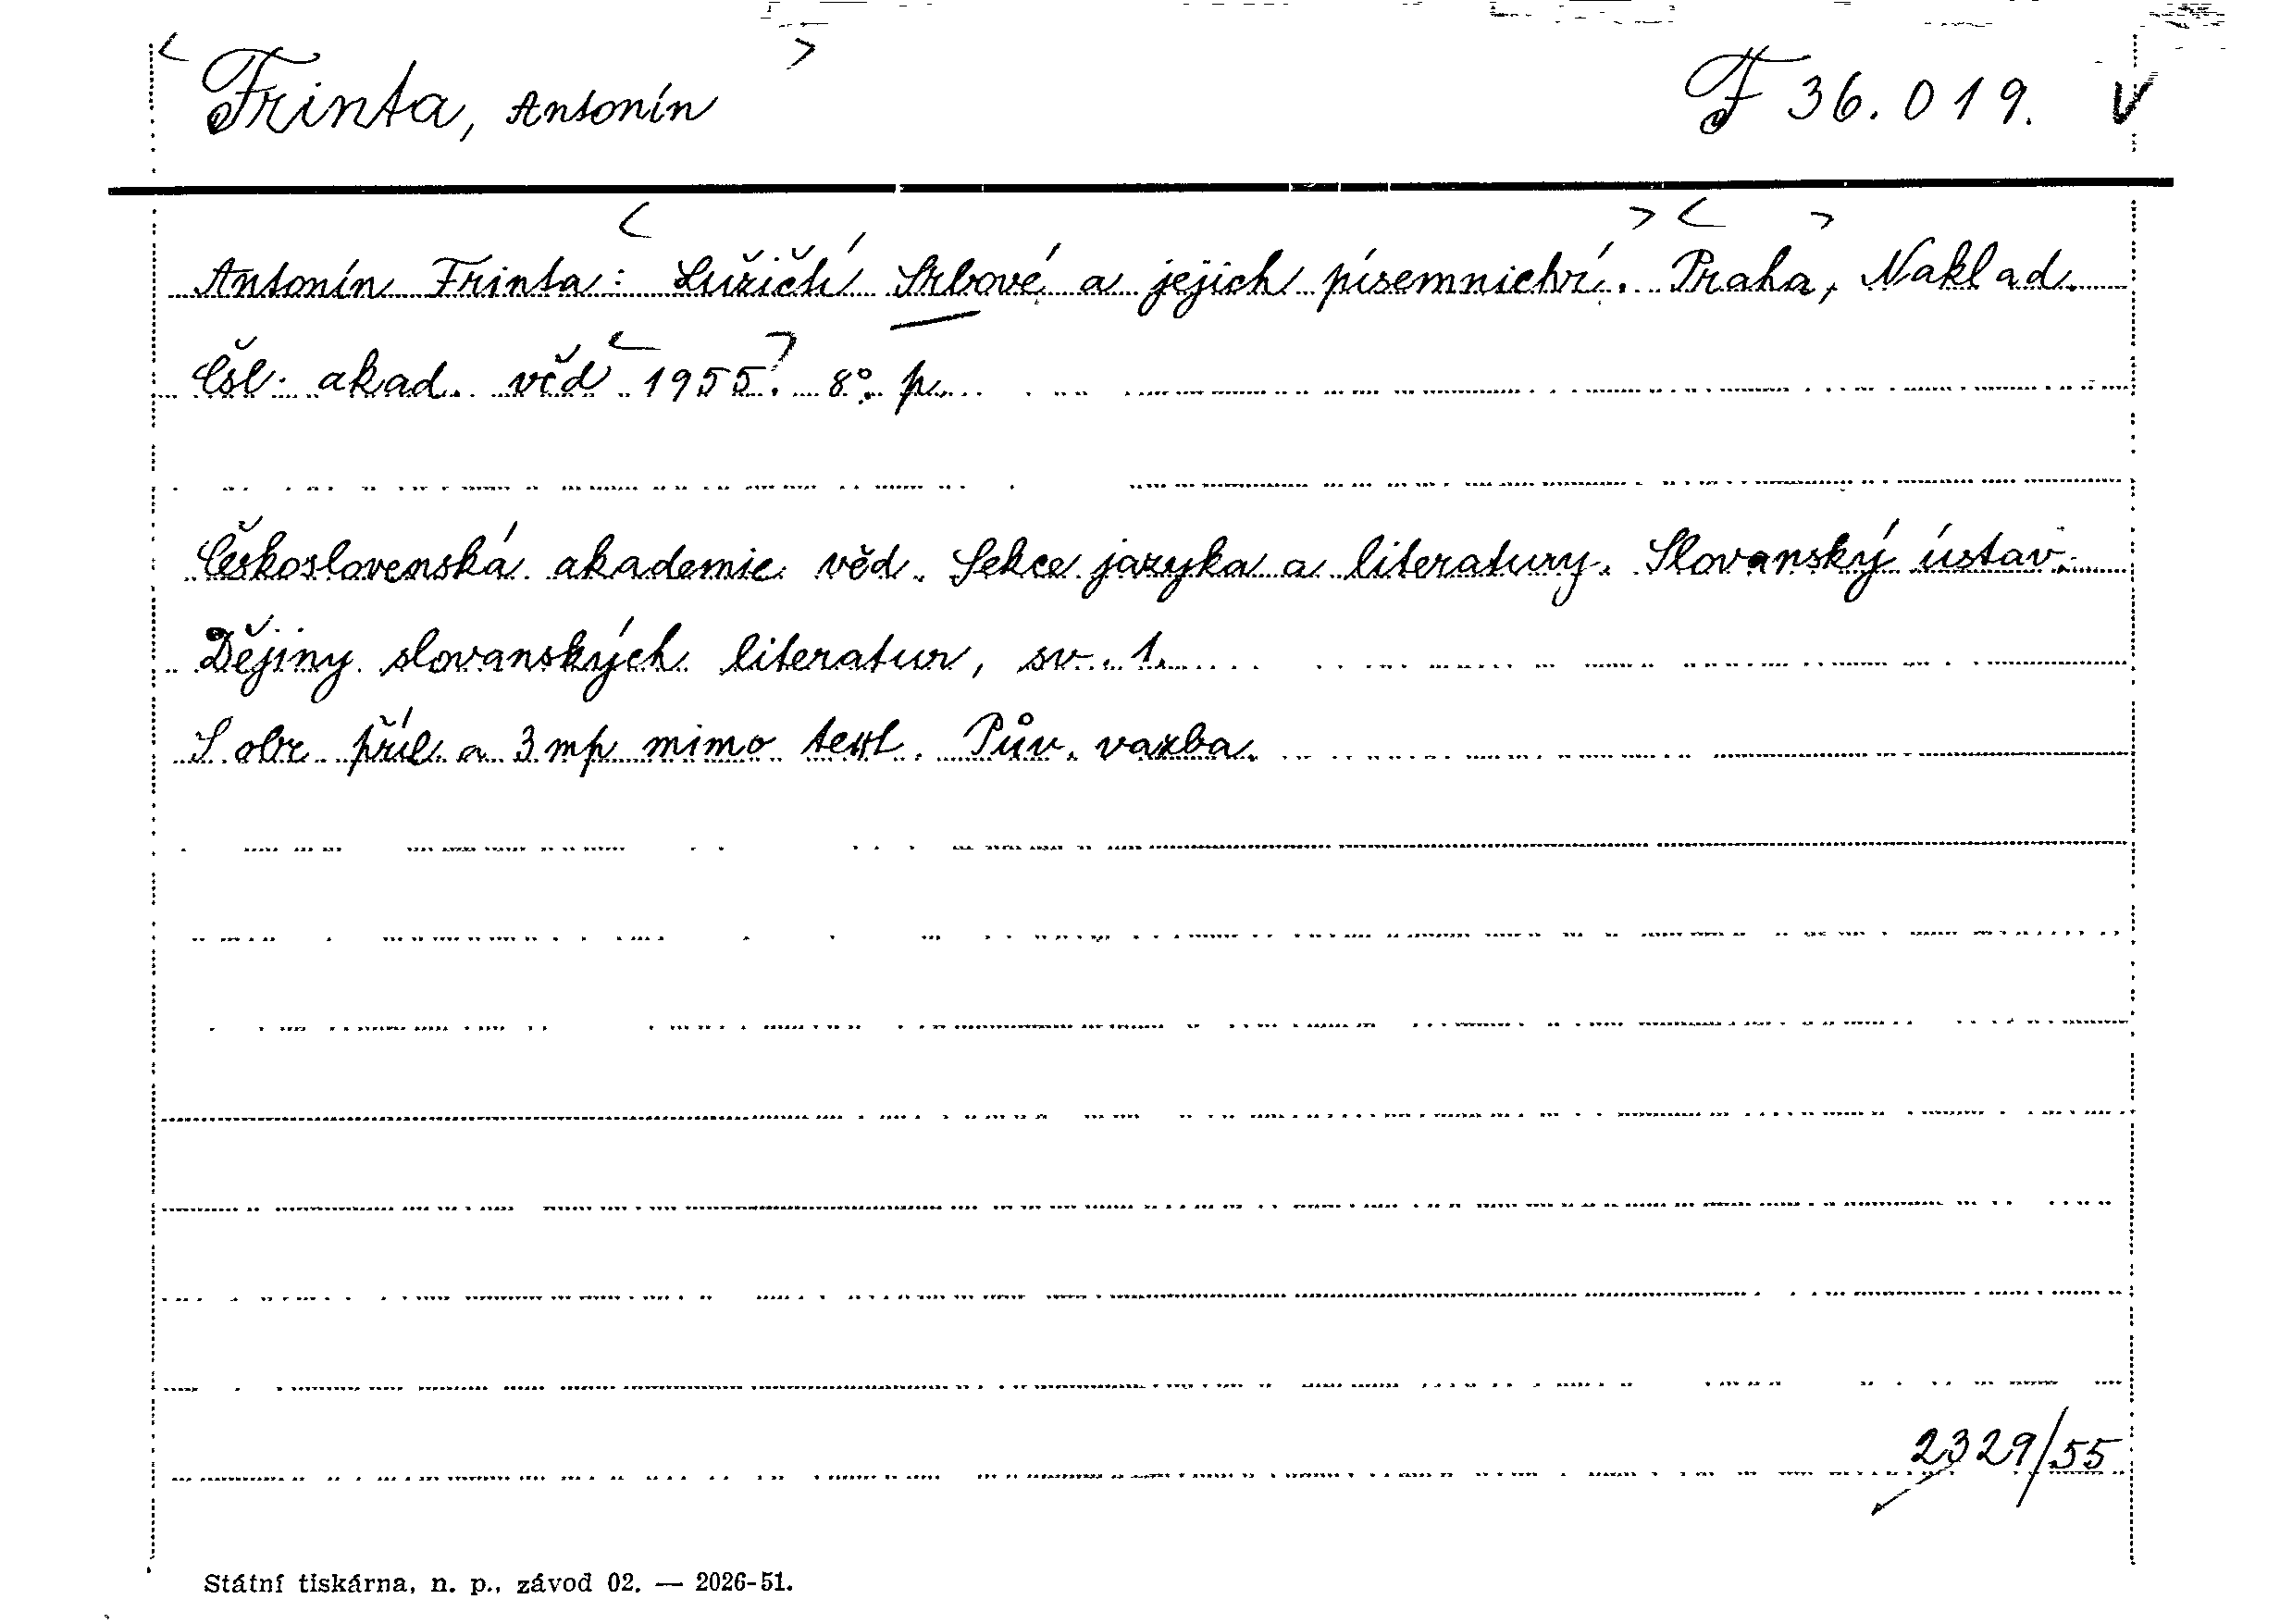 < Frinta, Antonín > F 36.019. V
Antonín Frinta: < Lužičtí Srbové a jejich písemnictví. > < Praha, > Naklad.
Čsl. akad. věd < 1955. > 8°. p.
Československá akademie věd. Sekce jazyka a literatury. Slovanský ústav.
Dějiny slovanských literatur, sv. 1.
S obr. příl. a 3 mp mimo text. Pův. vazba.
2329/55
Státní tiskárna, n. p., závod 02. — 2026-51.